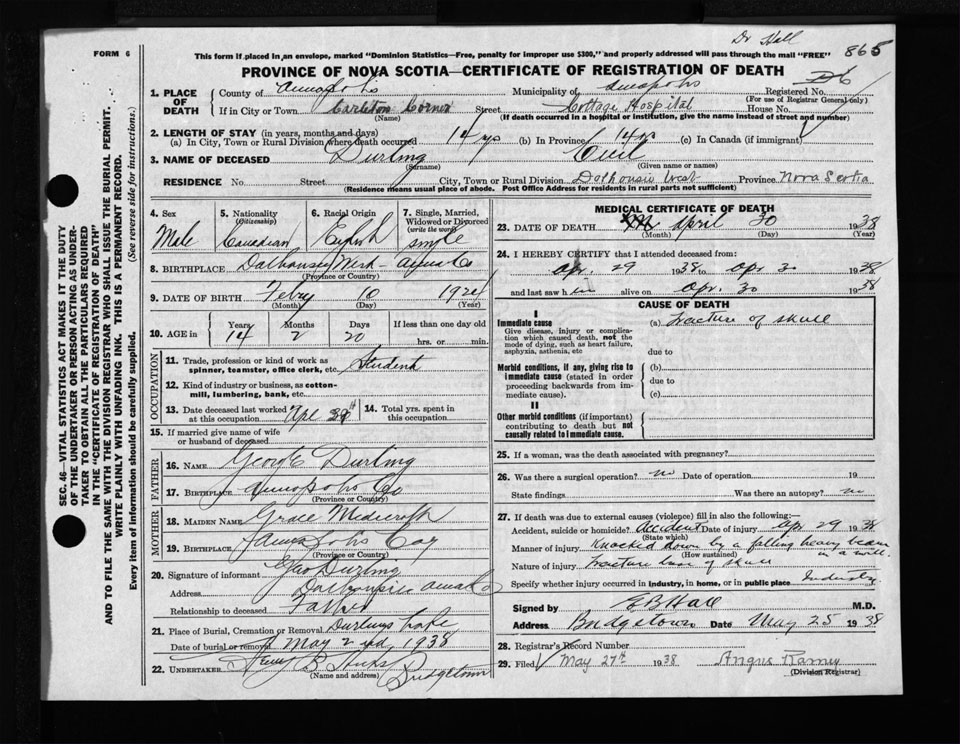 Dr Hall
FORM 6
This form if placed in an envelope, marked "Dominion Statistics—Free, penalty for improper use $300," and properly addressed will pass through the mail "FREE" 865
PROVINCE OF NOVA SCOTIA—CERTIFICATE OF REGISTRATION OF DEATH
1. PLACE OF DEATH
County of Annapolis Municipality of Annapolis Registered No. 26
(For use of Registrar General only)
If in City or Town Carleton Corner Street Cottage Hospital House No.
(Name) (If death occurred in a hospital or institution, give the name instead of street and number)
2. LENGTH OF STAY (in years, months and days)
(a) In City, Town or Rural Division where death occurred 14 yrs (b) In Province 14 yr (c) In Canada (if immigrant)
3. NAME OF DECEASED Durling Cecil
(Surname) (Given name or names)
RESIDENCE No. Street City, Town or Rural Division Dalhousie West Province Nova Scotia
(Residence means usual place of abode. Post Office Address for residents in rural parts not sufficient)
4. Sex Male
5. Nationality (Citizenship) Canadian
6. Racial Origin English
7. Single, Married, Widowed or Divorced (write the word) single
8. BIRTHPLACE Dalhousie West - Anna Co
(Province or County)
9. DATE OF BIRTH Febry 10 1924
(Month) (Day) (Year)
10. AGE in Years 14 Months 2 Days 20 If less than one day old hrs. or min.
OCCUPATION
11. Trade, profession or kind of work as spinner, teamster, office clerk, etc. Student
12. Kind of industry or business, as cotton-mill, lumbering, bank, etc.
13. Date deceased last worked at this occupation Apl 29th
14. Total yrs. spent in this occupation
15. If married give name of wife or husband of deceased
FATHER
16. NAME George Durling
17. BIRTHPLACE Annapolis Co
(Province or Country)
MOTHER
18. MAIDEN NAME Grace Medicraft
19. BIRTHPLACE Annapolis Co
(Province or Country)
20. Signature of informant Geo Durling
Address Dalhousie Anna Co
Relationship to deceased Father
21. Place of Burial, Cremation or Removal Durlings Lake
Date of burial or removal May 2nd, 1938
22. UNDERTAKER B Hicks Bridgetown
(Name and address)
MEDICAL CERTIFICATE OF DEATH
23. DATE OF DEATH April 30 1938
(Month) (Day) (Year)
24. I HEREBY CERTIFY that I attended deceased from:
Apr. 29 1938 to Apr 30 1938
and last saw him alive on Apr. 30 1938
CAUSE OF DEATH
I
Immediate cause (a) Fracture of skull
Give disease, injury or complication which caused death, not the mode of dying, such as heart failure, asphyxia, asthenia, etc
due to
Morbid conditions, if any, giving rise to immediate cause (stated in order proceeding backwards from immediate cause). (b)
due to
(c)
II
Other morbid conditions (if important) contributing to death but not causally related to I immediate cause.
25. If a woman, was the death associated with pregnancy?
26. Was there a surgical operation? no Date of operation 19
State findings Was there an autopsy? no
27. If death was due to external causes (violence) fill in also the following:—
Accident, suicide or homicide? Accident Date of injury Apr 29 1938
(State which)
Manner of injury Knocked down by a falling heavy beam in a mill.
(How sustained)
Nature of injury Fracture base of skull
Specify whether injury occurred in industry, in home, or in public place Industry
Signed by E B Hall M.D.
Address Bridgetown Date May 25 1938
28. Registrar's Record Number
29. Filed May 27th 1938 Angus Ramey
(Division Registrar)
SEC. 46—VITAL STATISTICS ACT MAKES IT THE DUTY
OF THE UNDERTAKER OR PERSON ACTING AS UNDER-
TAKER TO OBTAIN ALL THE PARTICULARS REQUIRED
IN THE "CERTIFICATE OF REGISTRATION OF DEATH"
AND TO FILE THE SAME WITH THE DIVISION REGISTRAR WHO SHALL ISSUE THE BURIAL PERMIT.
WRITE PLAINLY WITH UNFADING INK. THIS IS A PERMANENT RECORD.
Every item of information should be carefully supplied. (See reverse side for instructions.)